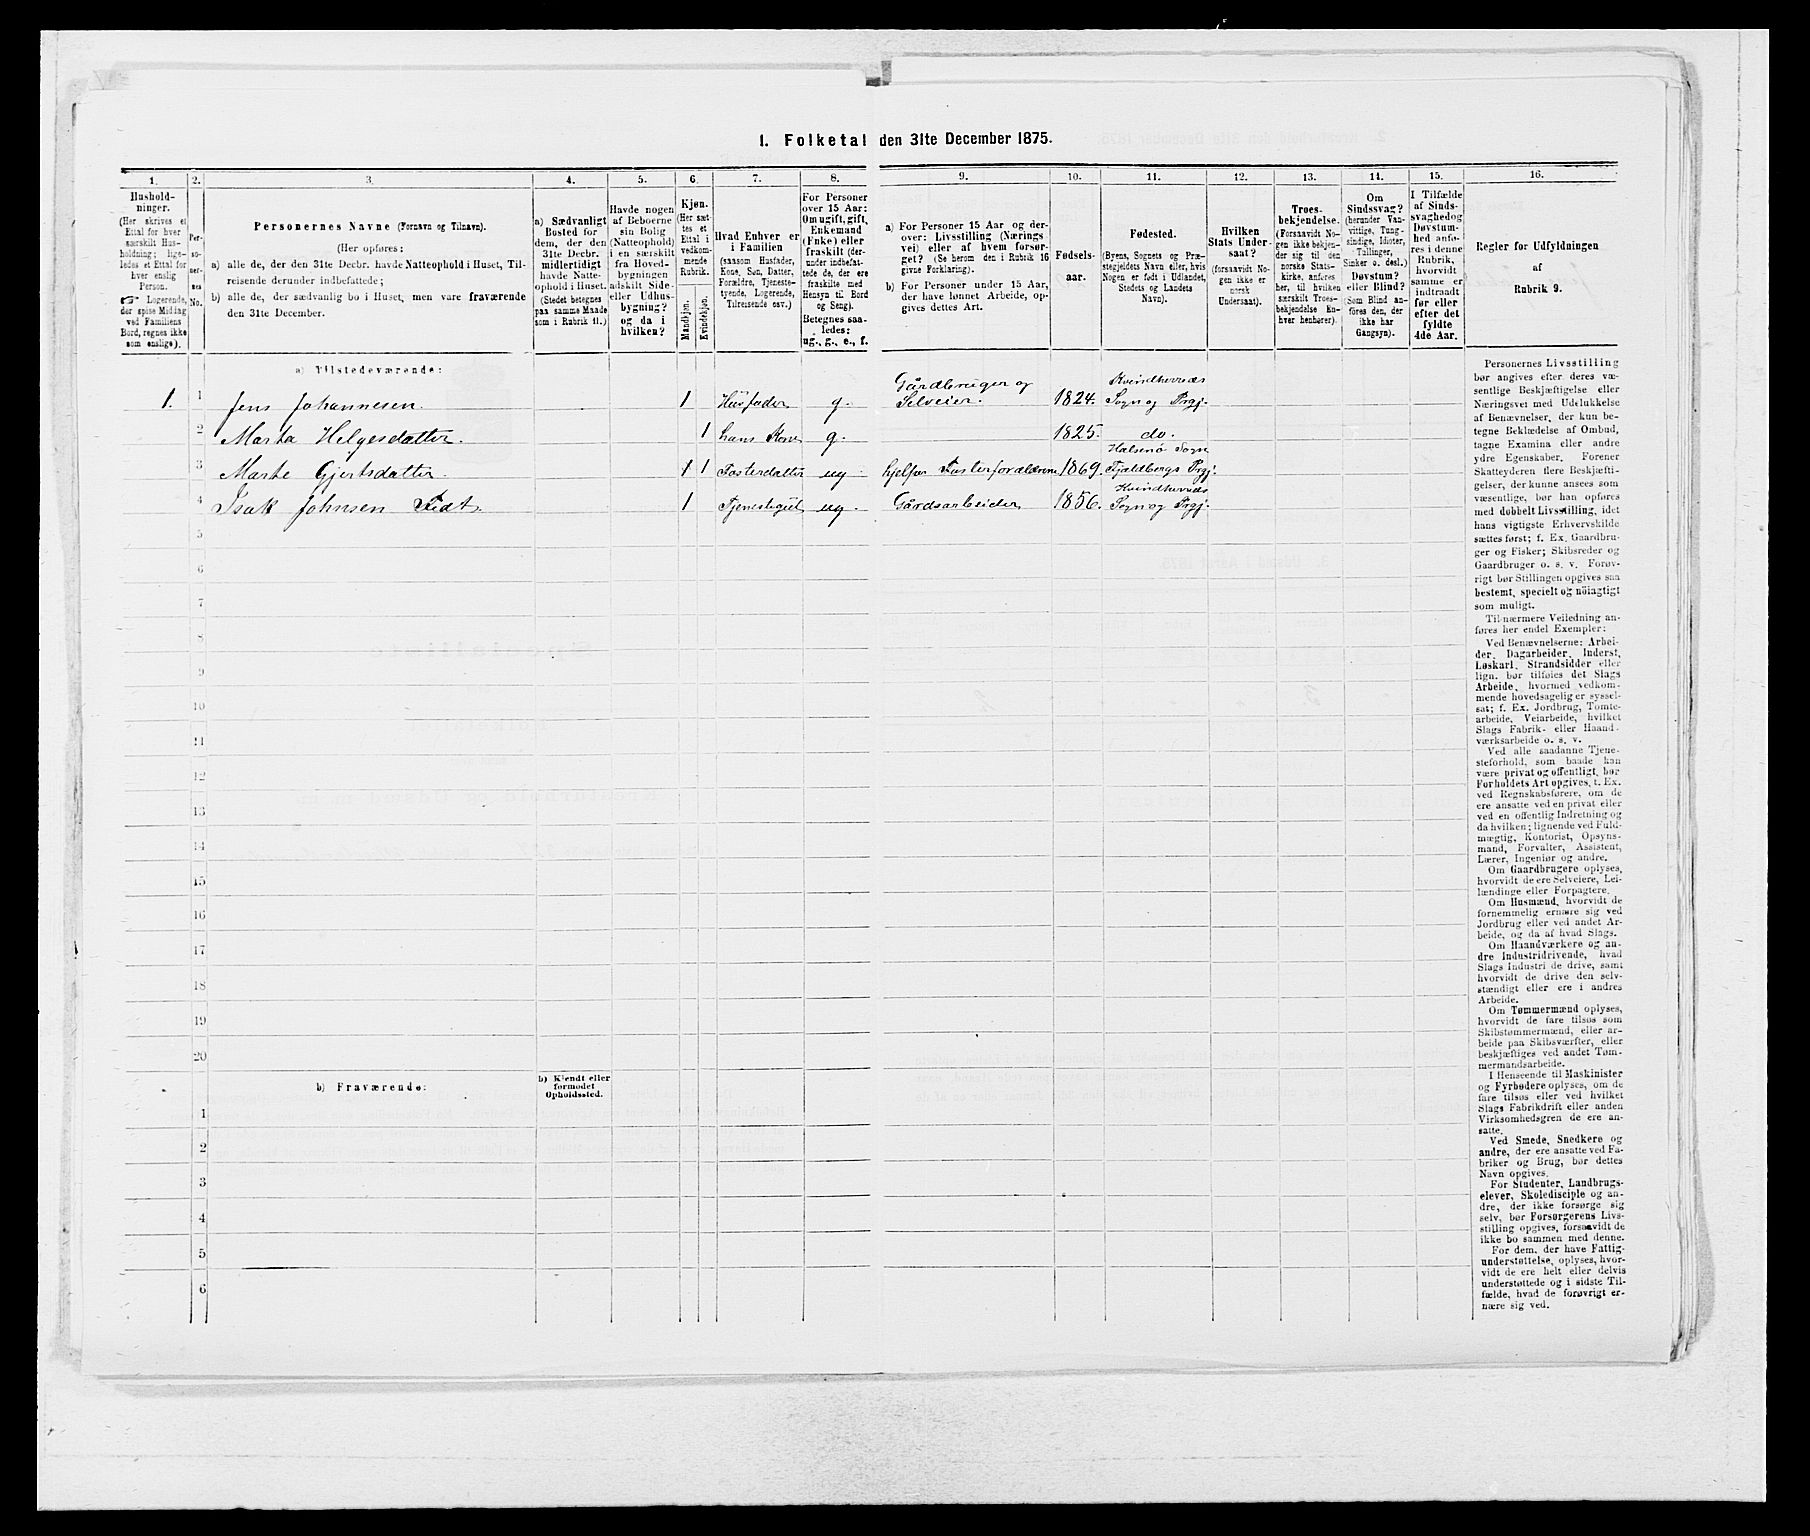 1. Folketal den 31te December 1875.
1. 2. 3. 4. 5. 6. 7. 8. 9. 10. 11. 12. 13. 14. 15. 16.
Hushold-
ninger.
(Her skrives et
Ettal for hver
særskilt Hus-
holdning; lige-
ledes et Ettal for
hver enslig
Person.
☞ Logerende,
der spise Middag
ved Familiens
Bord, regnes ikke
som enslige).
Per-
so-
ner-
nes
No.
Personernes Navne (Fornavn og Tilnavn).
(Her opføres:
a) alle de, der den 31te Decbr. havde Natteophold i Huset, Til-
reisende derunder indbefattede;
b) alle de, der sædvanlig bo i Huset, men vare fraværende
den 31te December.
a) Sædvanligt
Bosted for
dem, der den
31te Decbr.
midlertidigt
havde Natte-
ophold i Huset.
(Stedet betegnes
paa samme Maade
som i Rubrik 11.)
Havde nogen
af Beboerne
sin Bolig
(Natteophold)
i en særskilt
fra Hoved-
bygningen
adskilt Side-
eller Udhus-
bygning?
og da i
hvilken?
Kjøn.
(Her sæt-
tes et
Ettal i
vedkom-
mende
Rubrik.
Mandkjøn.
Kvindekjøn.
Hvad Enhver er
i Familien
(saasom Husfader,
Kone, Søn, Datter,
Forældre, Tjeneste-
tyende, Logerende,
Tilreisende osv.)
For Personer
over 15 Aar:
Om ugift, gift,
Enkemand
(Enke) eller
fraskilt (der-
under indbefat-
tede de, der ere
fraskilte med
Hensyn til Bord
og Seng).
Betegnes saa-
ledes:
ug., g., e., f.
a) For Personer 15 Aar og der-
over: Livsstilling (Nærings
vei) eller af hvem forsør-
get? (Se herom den i Rubrik 16
givne Forklaring).
b) For Personer under 15 Aar,
der have lønnet Arbeide, op-
gives dettes Art.
Fødsels-
aar.
Fødested.
(Byens, Sognets og Præ-
stegjeldets Navn eller, hvis
Nogen er født i Udlandet,
Stedets og Landets
Navn).
Hvilken
Stats Under-
saat?
(forsaavidt No-
gen ikke er
norsk
Undersaat).
Troes-
bekjendelse.
(Forsaavidt No-
gen ikke bekjen-
der sig til den
norske Stats-
kirke, anføres
her, til hvilken
særskilt Troes-
bekjendelse En-
hver henhører).
Om
Sindssvag?
(herunder Van-
vittige, Tung-
sindige, Idioter,
Tullinger,
Sinker o. desl.)
Døvstum?
eller Blind?
(Som Blind an-
føres den, der
ikke har
Gangsyn).
I Tilfælde
af Sinds-
svaghed og
Døvstum-
hed anfø-
res i denne
Rubrik,
hvorvidt
samme er
indtraadt
før eller
efter det
fyldte
4de Aar.
Regler for Udfyldningen
af
Rubrik 9.
a) Tilstedeværende:
1. 1 Jens Johannesen. 1 Husfader g. Gårdbruger og Selveier. 1824. Kvindherreds Sogn og Prgj.
2 Marta Helgesdatter. 1 hans Kone g. 1825. do.
3 Marte Gjertsdatter. 1 1 Fosterdatter ug hjelper Fosterforældrene 1869. Halsenö Sogn Fjeldbergs Prgj.
4 Isak Johnsen 1 Tjenestegut ug. Gårdsarbeider 1856. Kvindherreds Sogn og Prgj.
5
6
7
8
9
10
11
12
13
14
15
16
17
18
19
20
b) Fraværende:
b) Kjendt eller
formodet
Opholdssted.
1
2
3
4
5
6
Personernes Livsstilling
bør angives efter deres væ-
sentlige Beskjæftigelse eller
Næringsvei med Udelukkelse
af Benævnelser, der kun be-
tegne Beklædelse af Ombud,
tagne Examina eller andre
ydre Egenskaber. Forener
Skatteyderen flere Beskjæfti-
gelser, der kunne ansees som
væsentlige, bør han opføres
med dobbelt Livsstilling, idet
hans vigtigste Erhvervskilde
sættes først; f. Ex. Gaardbru-
ger og Fisker; Skibsreder og
Gaardbruger o. s. v. Forøv-
rigt bør Stillingen opgives saa
bestemt, specielt og nöiagtigt
som muligt.
Til nærmere Veiledning an-
føres her endel Exempler:
Ved Benævnelserne: Arbei-
der, Dagarbeider, Inderst,
Løskarl, Strandsidder eller
lign. bør tilføies det Slags
Arbeide, hvormed vedkom-
mende hovedsagelig er syssel-
sat; f. Ex. Jordbrug, Tomte-
arbeide, Veiarbeide, hvilket
Slags Fabrik- eller Haand-
værksarbeide o. s. v.
Ved alle saadanne Tjene-
steforhold, som baade kan
være privat og offentligt, bør
Forholdets Art opgives, t. Ex.
ved Regnskabsførere, om de
ere ansatte ved en privat eller
ved en offentlig Indretning og
da hvilken; lignende ved Fuld-
mægtig, Kontorist, Opsyns-
mand, Forvalter, Assistent,
Lærer, Ingeniør og andre.
Om Gaardbrugere oplyses,
hvorvidt de ere Selveiere, Lei-
lændinge eller Forpagtere.
Om Husmænd, hvorvidt de
fornemmelig ernære sig ved
Jordbrug eller ved andet Ar-
beide, og da af hvad Slags.
Om Haandværkere og an-
dre Industridrivende, hvad
Slags Industri de drive, samt
hvorvidt de drive den selv-
stændigt eller ere i andres
Arbeide.
Om Tømmermænd oplyses,
hvorvidt de fare tilsøs som
Skibstømmermænd, eller ar-
beide paa Skibsværfter, eller
beskjæftiges ved andet Tøm-
mermandsarbeide.
I Henseende til Maskinister
og Fyrbødere oplyses, om de
fare tilsøs eller ved hvilket
Slags Fabrikdrift eller anden
Virksomhedsgren de ere an-
satte.
Ved Smede, Snedkere og
andre, der ere ansatte ved Fa-
briker og Brug, bør dettes
Navn opgives.
For Studenter, Landbrugs-
elever, Skoledisciple og an-
dre, der ikke forsørge sig
selv, bør Forsørgerens Livs-
stilling opgives, forsaavidt de
ikke bo sammen med denne.
For dem, der have Fattig-
understøttelse, oplyses, hvor-
vidt de ere helt eller delvis
understøttede og i sidste Til-
fælde, hvad de forøvrigt er-
nære sig ved.